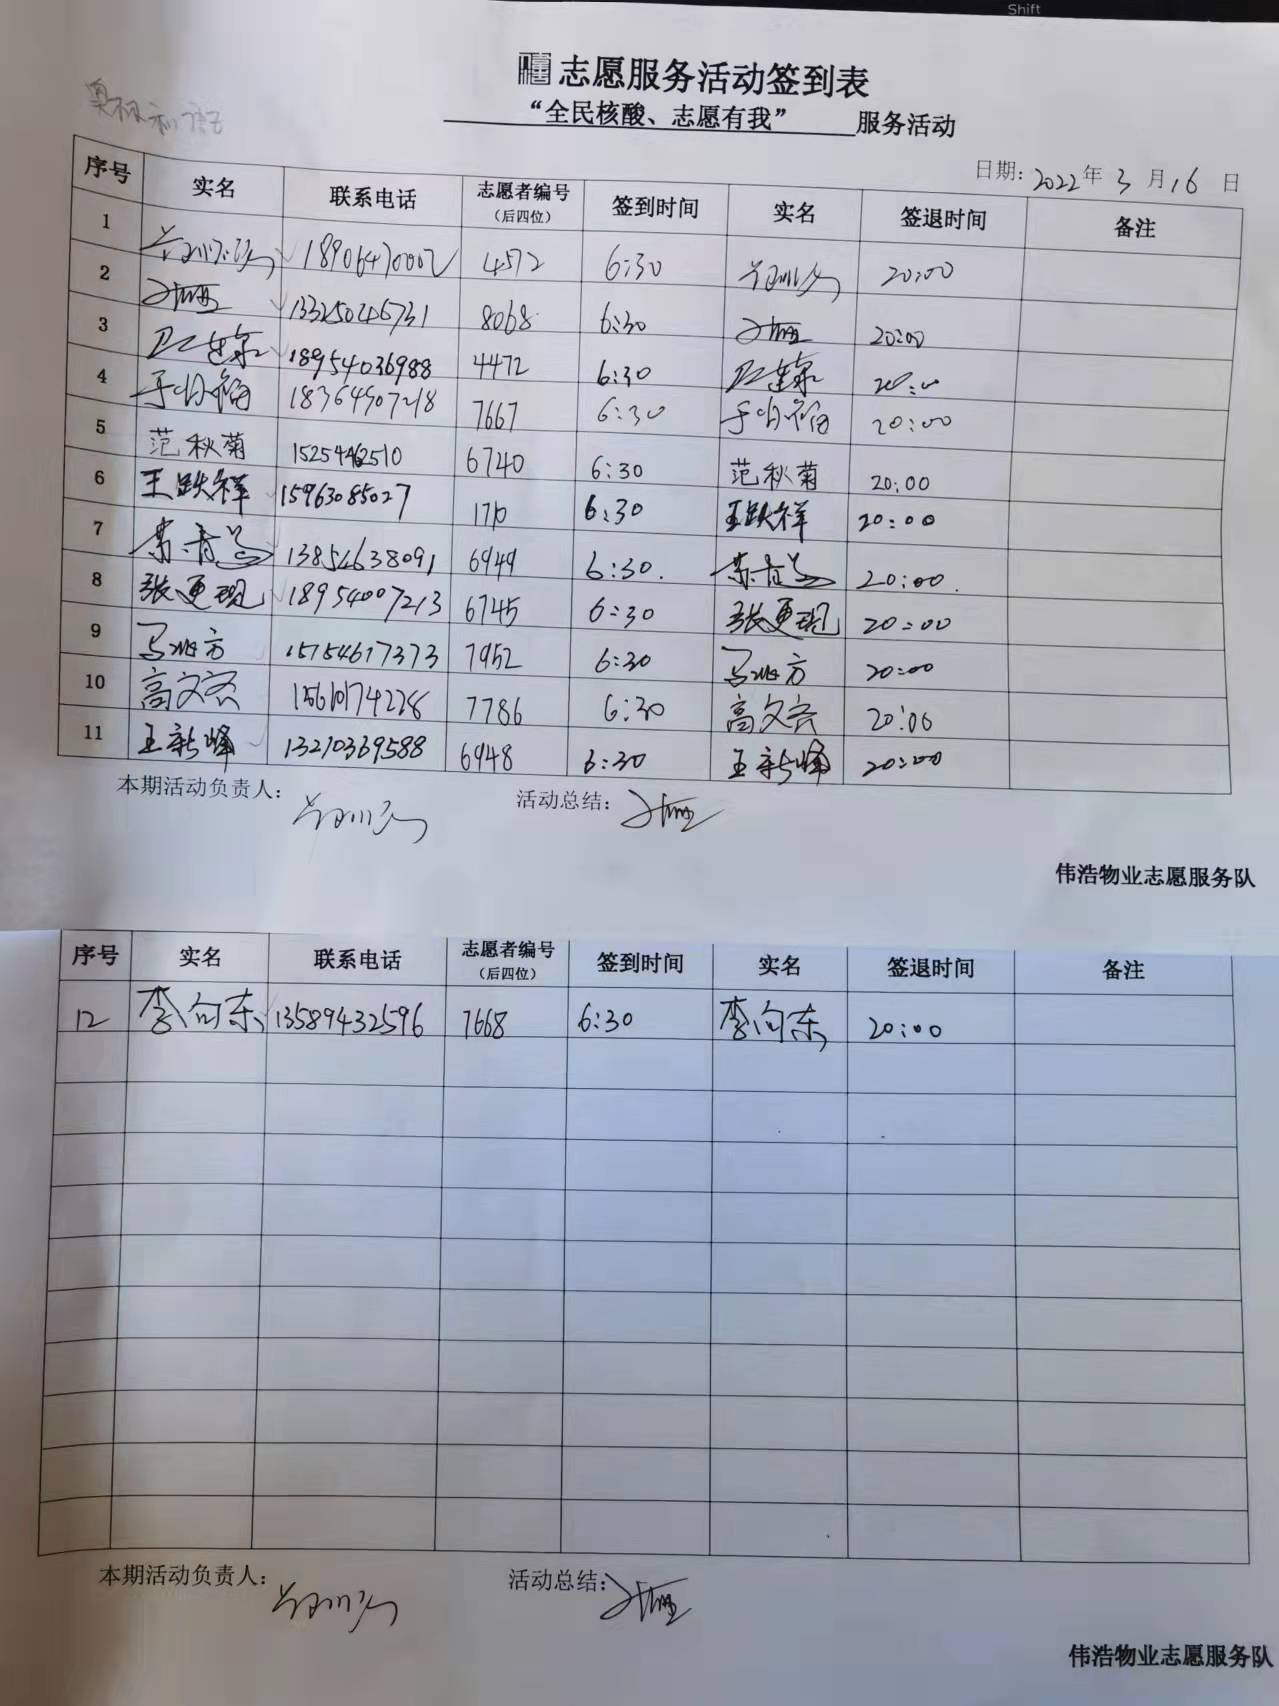 Shift
志愿服务活动签到表
“全民核酸、志愿有我” 服务活动
日期：2022年 3 月 16 日
序号 实名 联系电话 志愿者编号（后四位） 签到时间 实名 签退时间 备注
1 18906470002 4572 6:30 20:00
2 13325046731 8068 6:30 20:00
3 18954036988 4472 6:30
4 7667 6:30 20:00
5 范秋菊 6740 6:30 范秋菊 20:00
6 王跃祥 15963085027 6:30 王跃祥 20:00
7 13854638091 6949 6:30. 20:00.
8 张更现 18954007213 6745 6:30 张更现 20:00
9 15154617373 7952 6:30 20:00
10 高文齐 7786 6:30 高文齐 20:00
11 王新峰 13210369588 6948 6:30 王新峰 20:00
本期活动负责人： 活动总结：
伟浩物业志愿服务队
序号 实名 联系电话 志愿者编号（后四位） 签到时间 实名 签退时间 备注
12 李向东 13589432596 7668 6:30 李向东 20:00
本期活动负责人： 活动总结：
伟浩物业志愿服务队